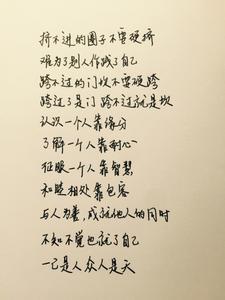 挤不进的圈子不要硬挤
难为了别人作践了自己
跨不过的门坎不要硬跨
跨过了是门 跨不过就是坎
认识一个人靠缘分
了解一个人靠耐心
征服一个人靠智慧
和睦相处靠包容
与人为善,成就他人的同时
不知不觉也就了自己
一己是人众人是天